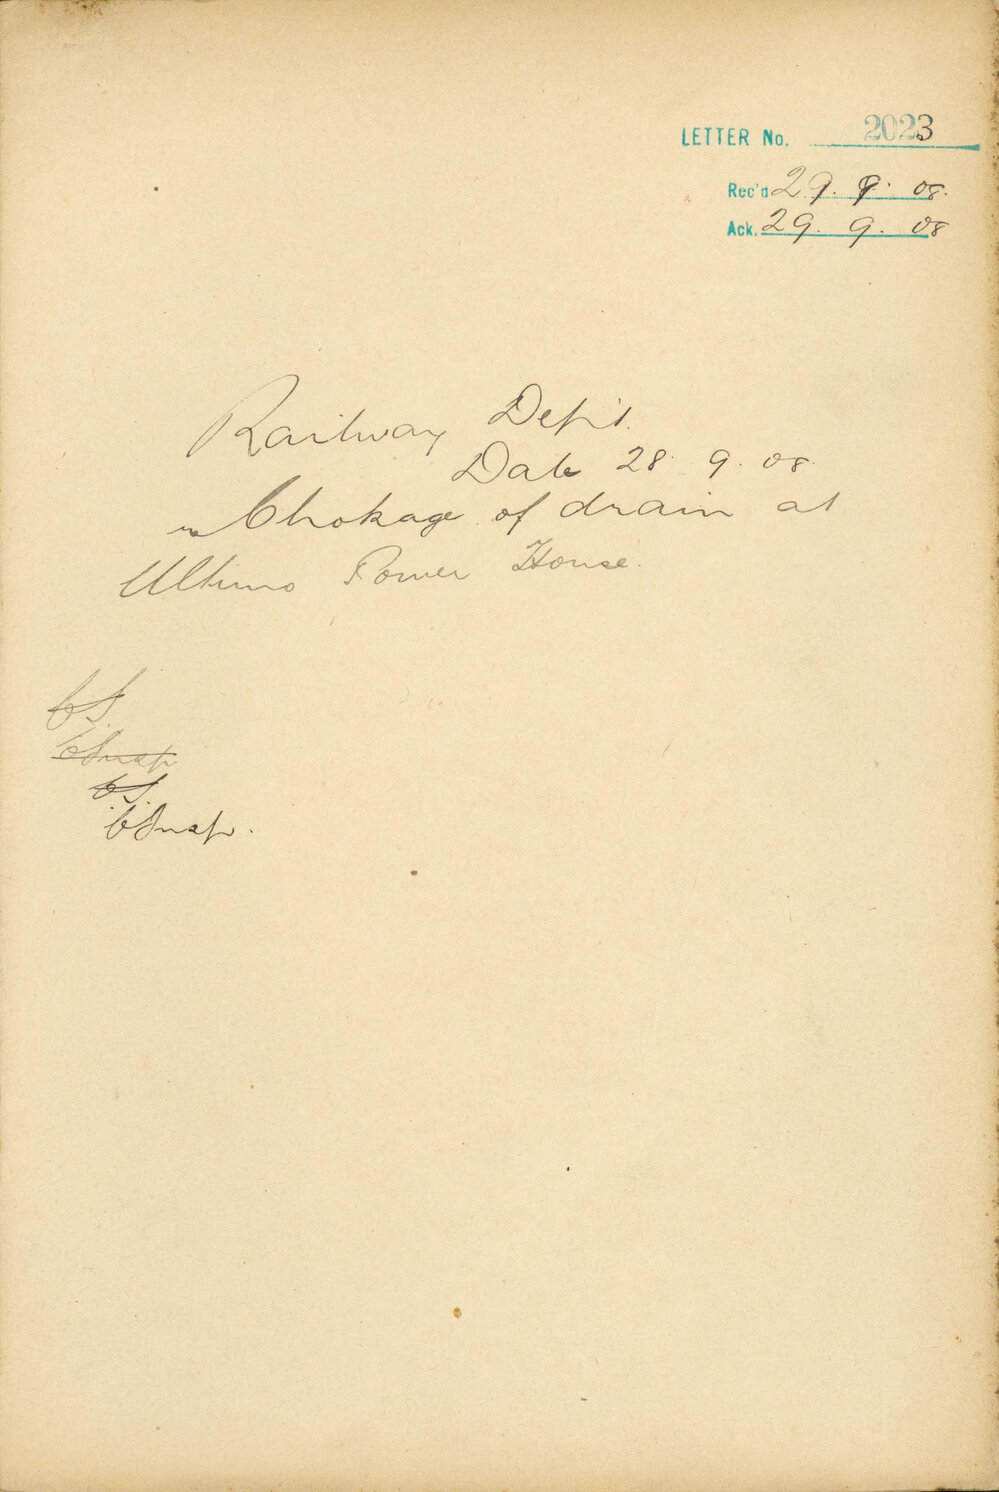 LETTER No. 2023
Rec'd 29. 9. 08.
Ack. 29. 9. 08
Railway Dep't.
Date 28. 9. 08.
re Chokage of drain at
Ultimo Power House.
CS.
C Insp
CS
C Insp.